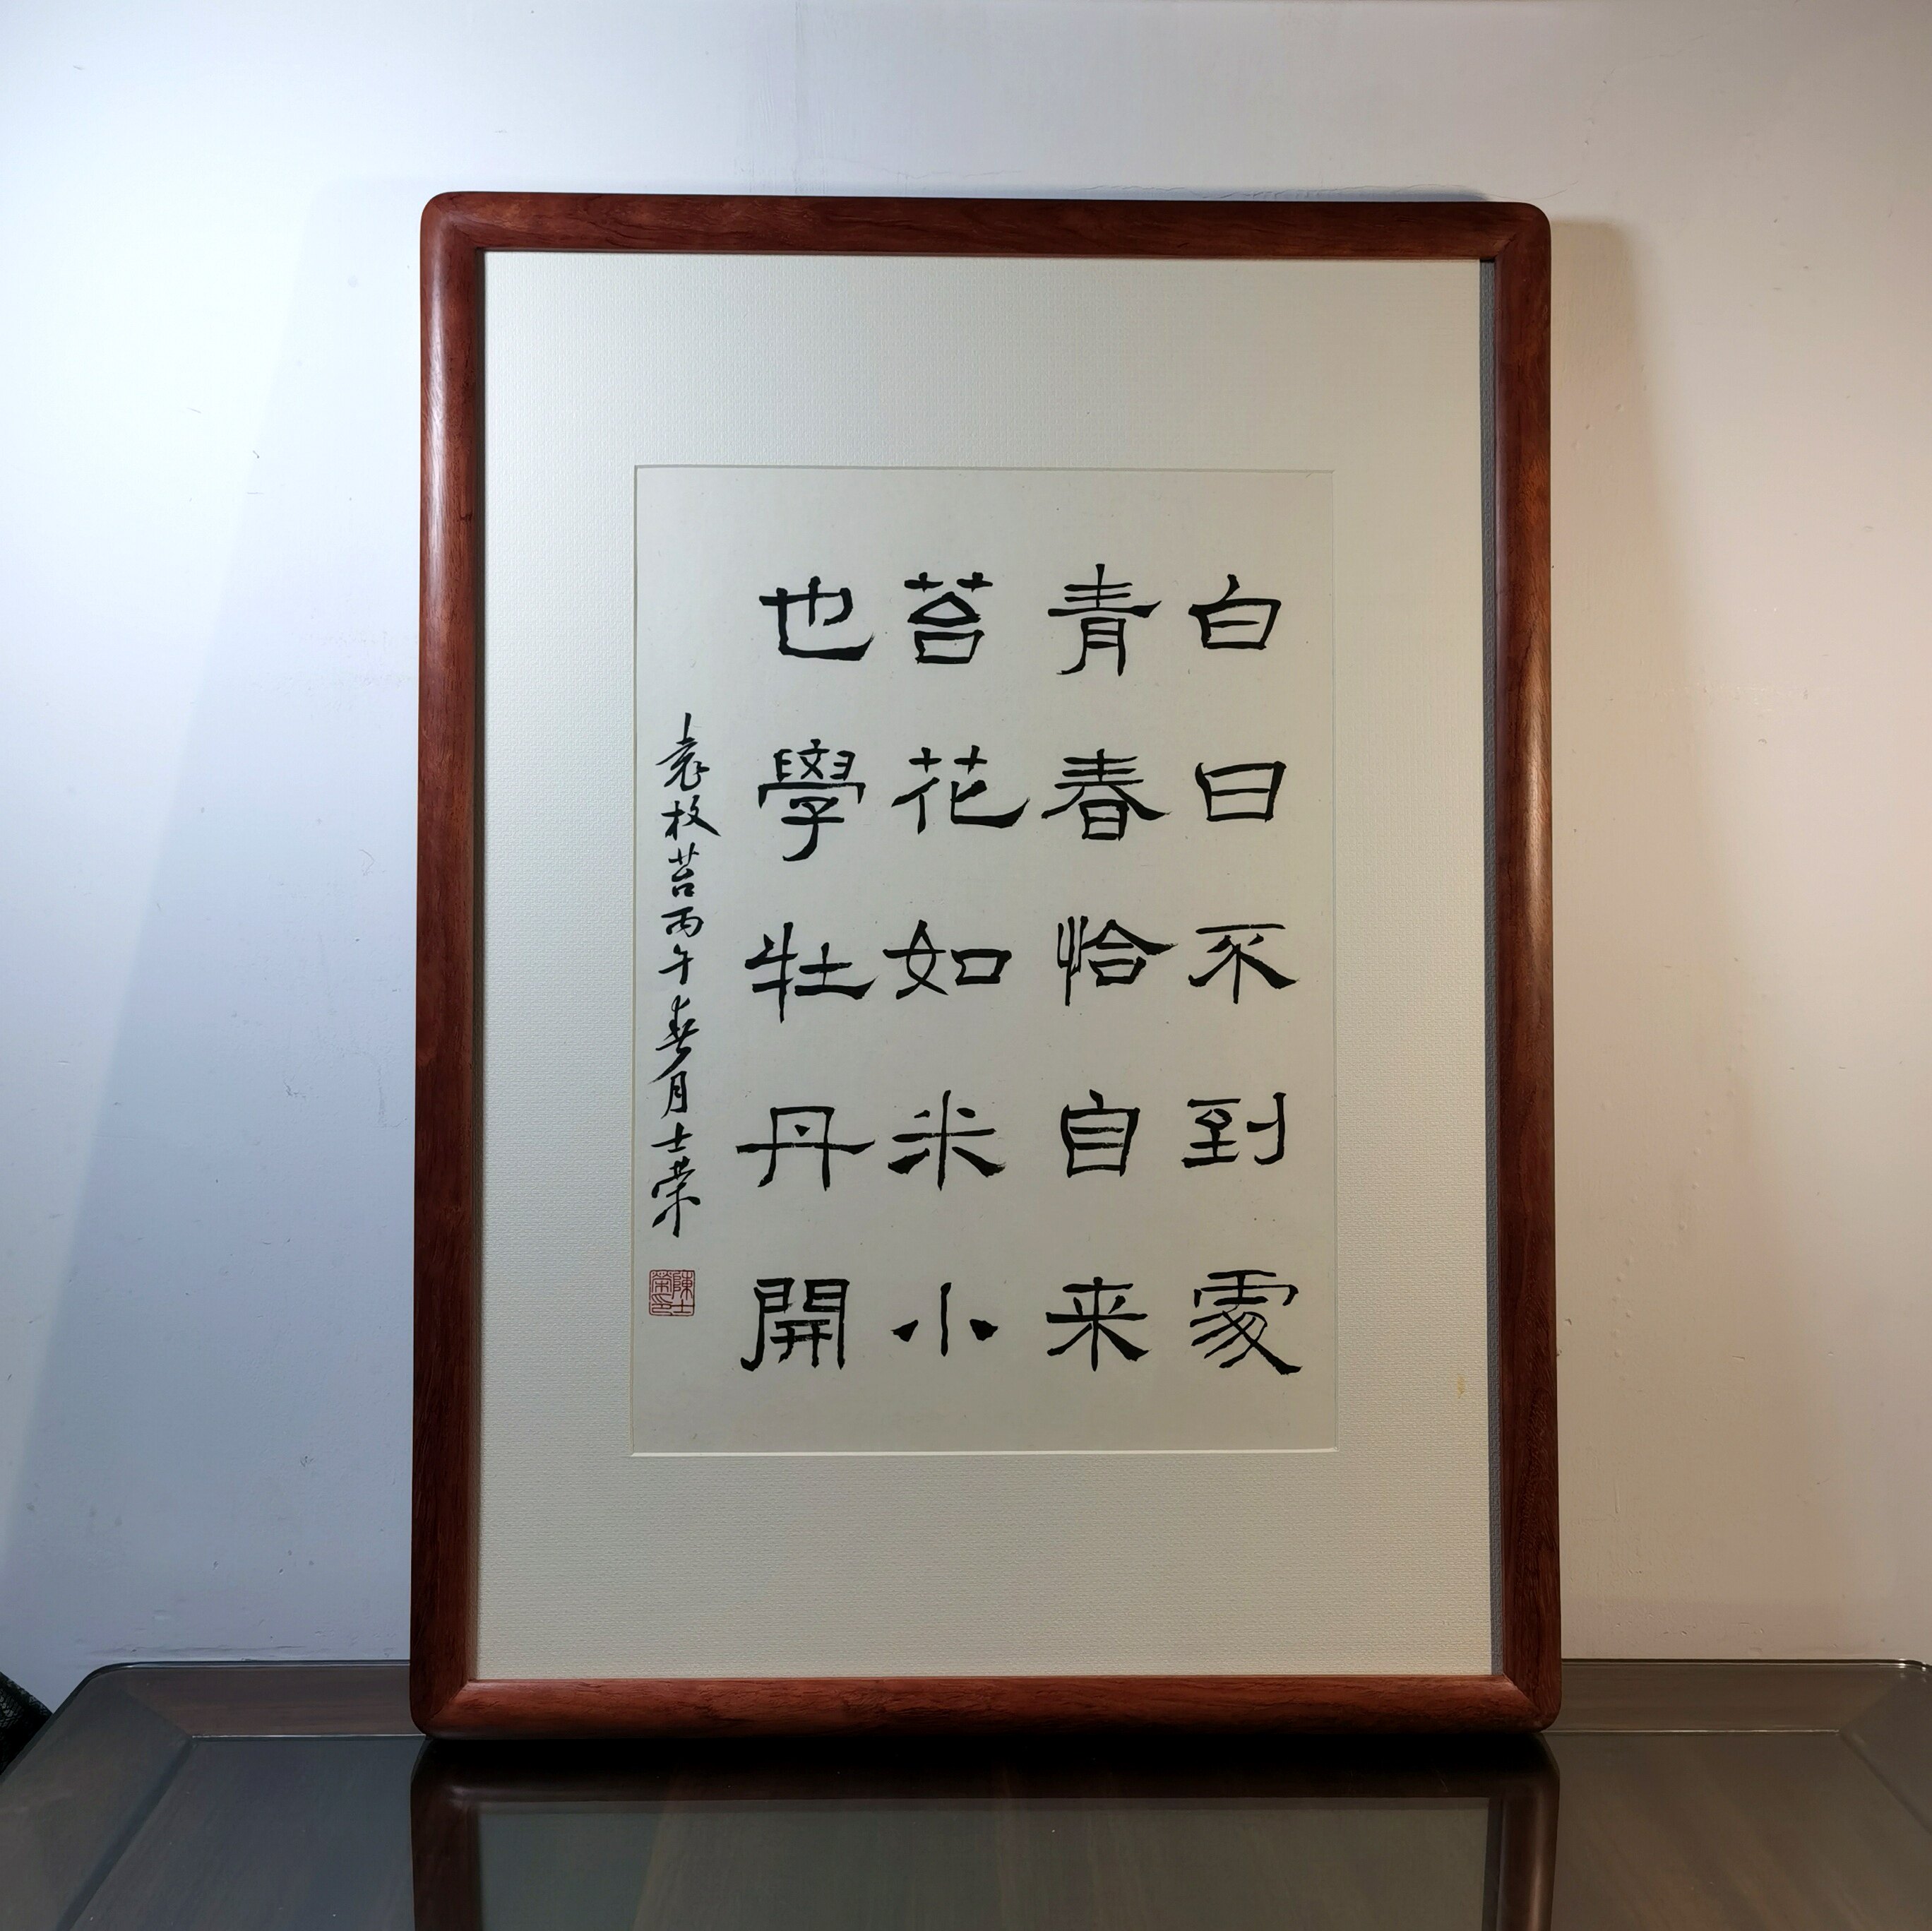 白日不到處
青春恰自来
苔花如米小
也學牡丹開
袁枚苔丙午春月士荣
陳士榮印